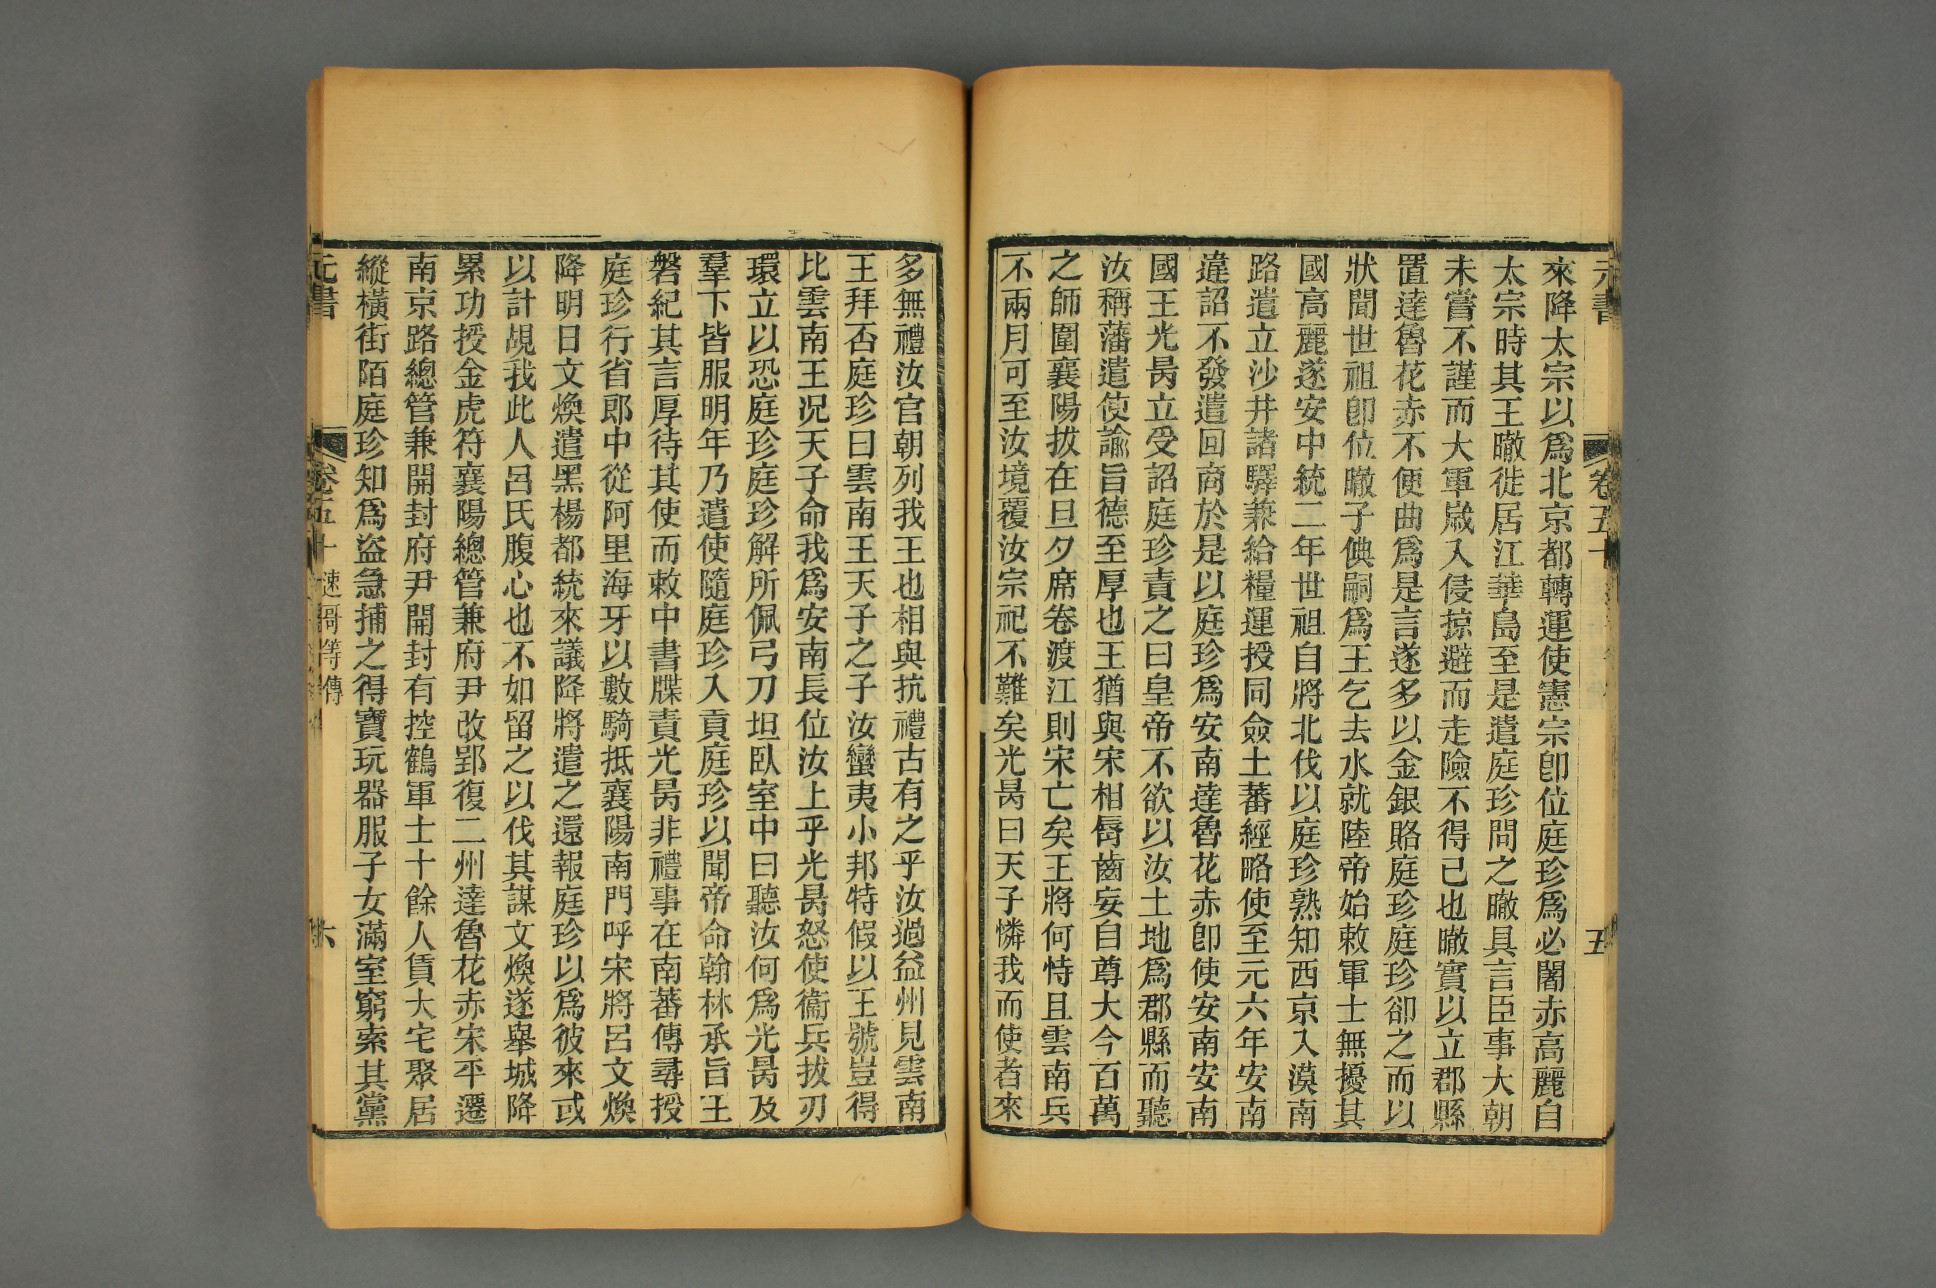 元書
卷五十
五
來降太宗以爲北京都轉運使憲宗卽位庭珍爲必闍赤高麗自
太宗時其王皞徙居江華島至是遣庭珍問之皞具言臣事大朝
未嘗不謹而大軍歲入侵掠避而走險不得已也皞實以立郡縣
置達魯花赤不便曲爲是言遂多以金銀賂庭珍庭珍卻之而以
狀聞世祖卽位皞子倎嗣爲王乞去水就陸帝始敕軍士無擾其
國高麗遂安中統二年世祖自將北伐以庭珍熟知西京入漠南
路遣立沙井諸驛兼給糧運授同僉土蕃經略使至元六年安南
違詔不發遣回商於是以庭珍爲安南達魯花赤卽使安南安南
國王光昺立受詔庭珍責之曰皇帝不欲以汝土地爲郡縣而聽
汝稱藩遣使諭旨德至厚也王猶與宋相脣齒妄自尊大今百萬
之師圍襄陽拔在旦夕席卷渡江則宋亡矣王將何恃且雲南兵
不兩月可至汝境覆汝宗祀不難矣光昺曰天子憐我而使者來
多無禮汝官朝列我王也相與抗禮古有之乎汝過益州見雲南
王拜否庭珍曰雲南王天子之子汝蠻夷小邦特假以王號豈得
比雲南王況天子命我爲安南長位汝上乎光昺怒使衞兵拔刃
環立以恐庭珍庭珍解所佩弓刀坦臥室中曰聽汝何爲光昺及
羣下皆服明年乃遣使隨庭珍入貢庭珍以聞帝命翰林承旨王
磐紀其言厚待其使而敕中書牒責光昺非禮事在南蕃傳尋授
庭珍行省郎中從阿里海牙以數騎抵襄陽南門呼宋將呂文煥
降明日文煥遣黑楊都統來議降將遣之還報庭珍以爲彼來或
以計覘我此人呂氏腹心也不如留之以伐其謀文煥遂舉城降
累功授金虎符襄陽總管兼府尹改郢復二州達魯花赤宋平遷
南京路總管兼開封府尹開封有控鶴軍士十餘人賃大宅聚居
縱橫街陌庭珍知爲盜急捕之得寶玩器服子女滿室窮索其黨
元書
卷五十
速哥等傳
六